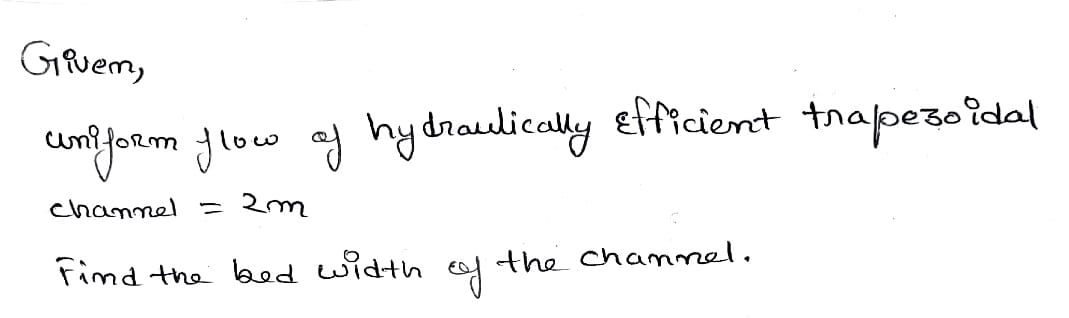 Given,
uniform flow of hydraulically efficient trapezoidal
channel = 2m
Find the bed width of the channel.